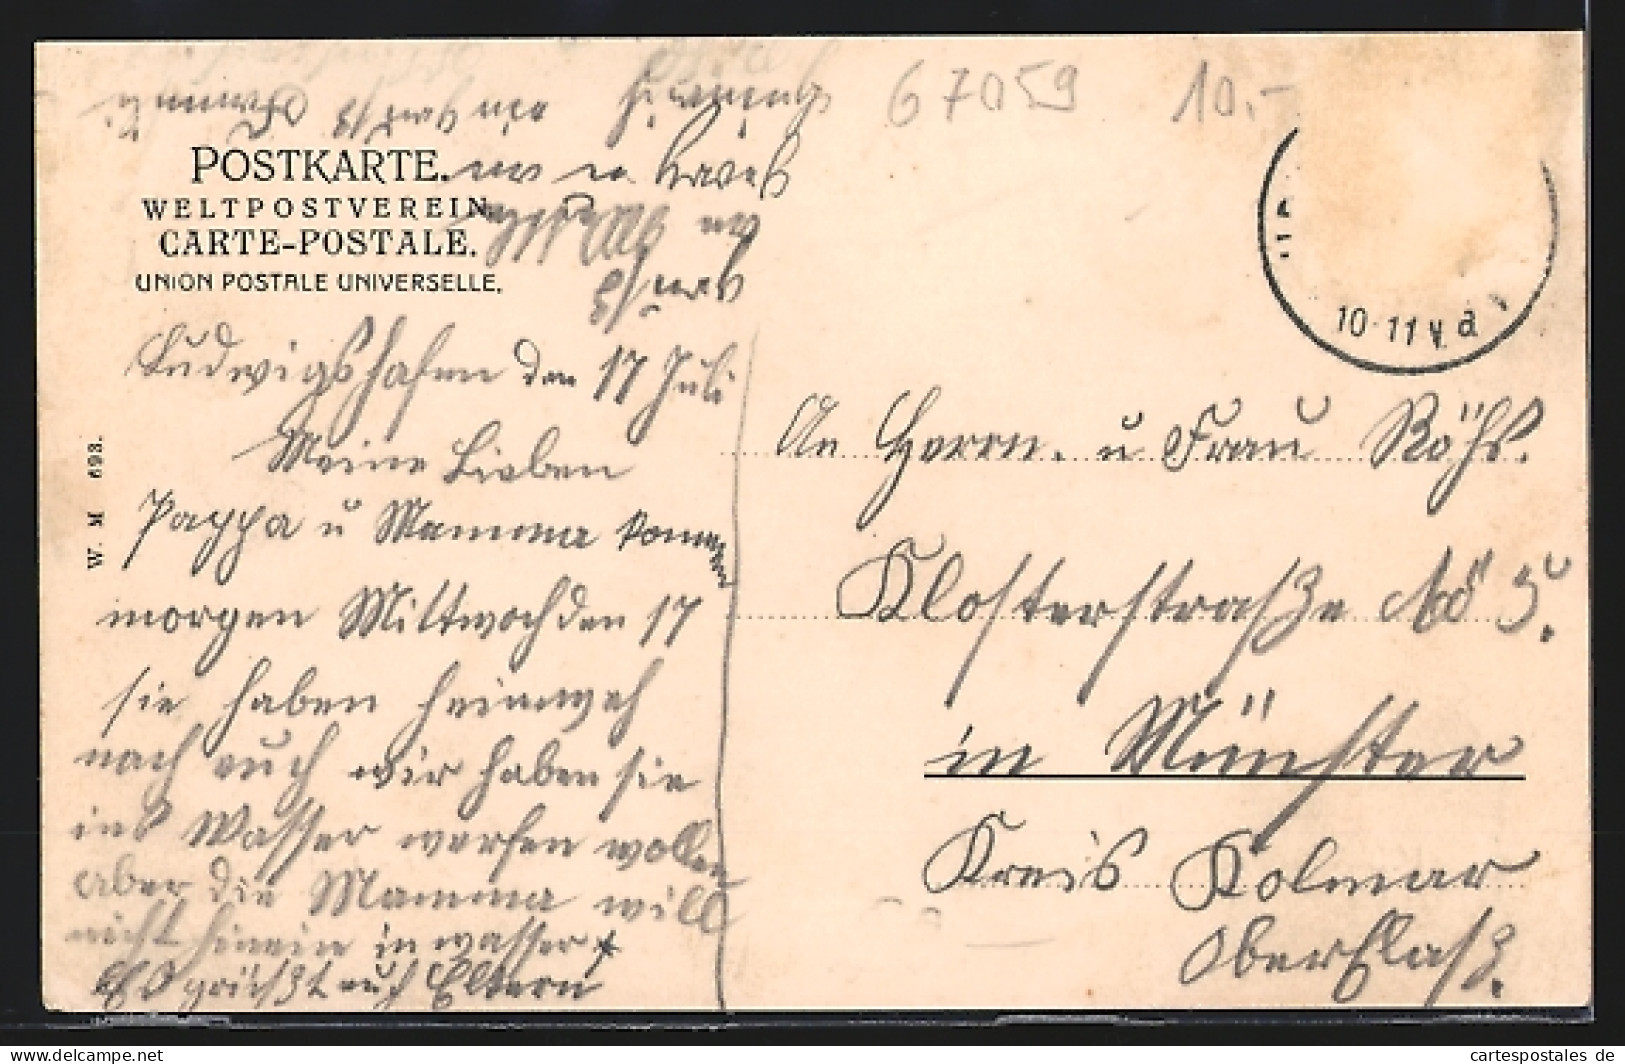 67059 10.-
POSTKARTE.
WELTPOSTVEREIN
CARTE-POSTALE.
UNION POSTALE UNIVERSELLE.
10-11 V. a
W. M 693.
Ludwigshafen den 17 Juli
Meine Lieben
Pappa u Mamma kommen
morgen Mittwoch den 17
sie haben heimweh
nach euch wir haben sie
ins Wasser werfen wollen
aber die Mamma will
nicht hinein in wasser
Es grüßt euch Eltern
An Herrn. u Frau Röhs.
Klosterstraße No 5.
in Münster
Kreis Kolmar
Ober Elaß.
cartespostales.de